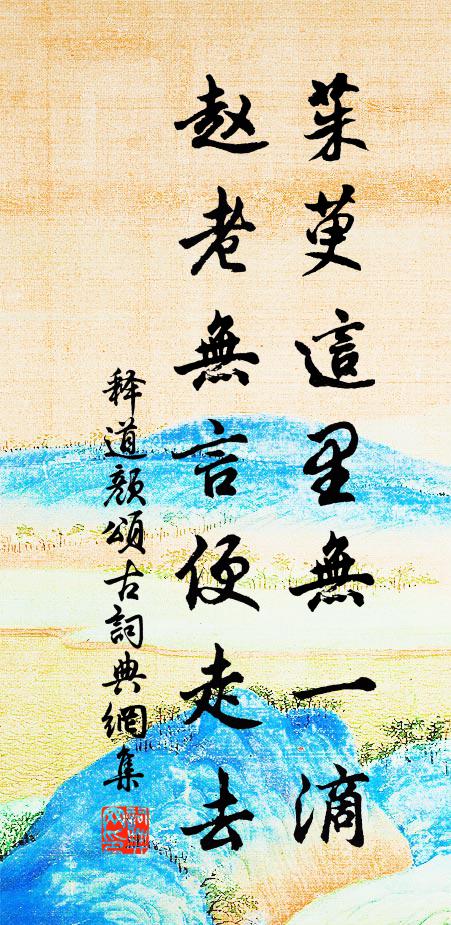 茱萸這里無一滴
趙老無言便走去
释道颜頌古詞典網集